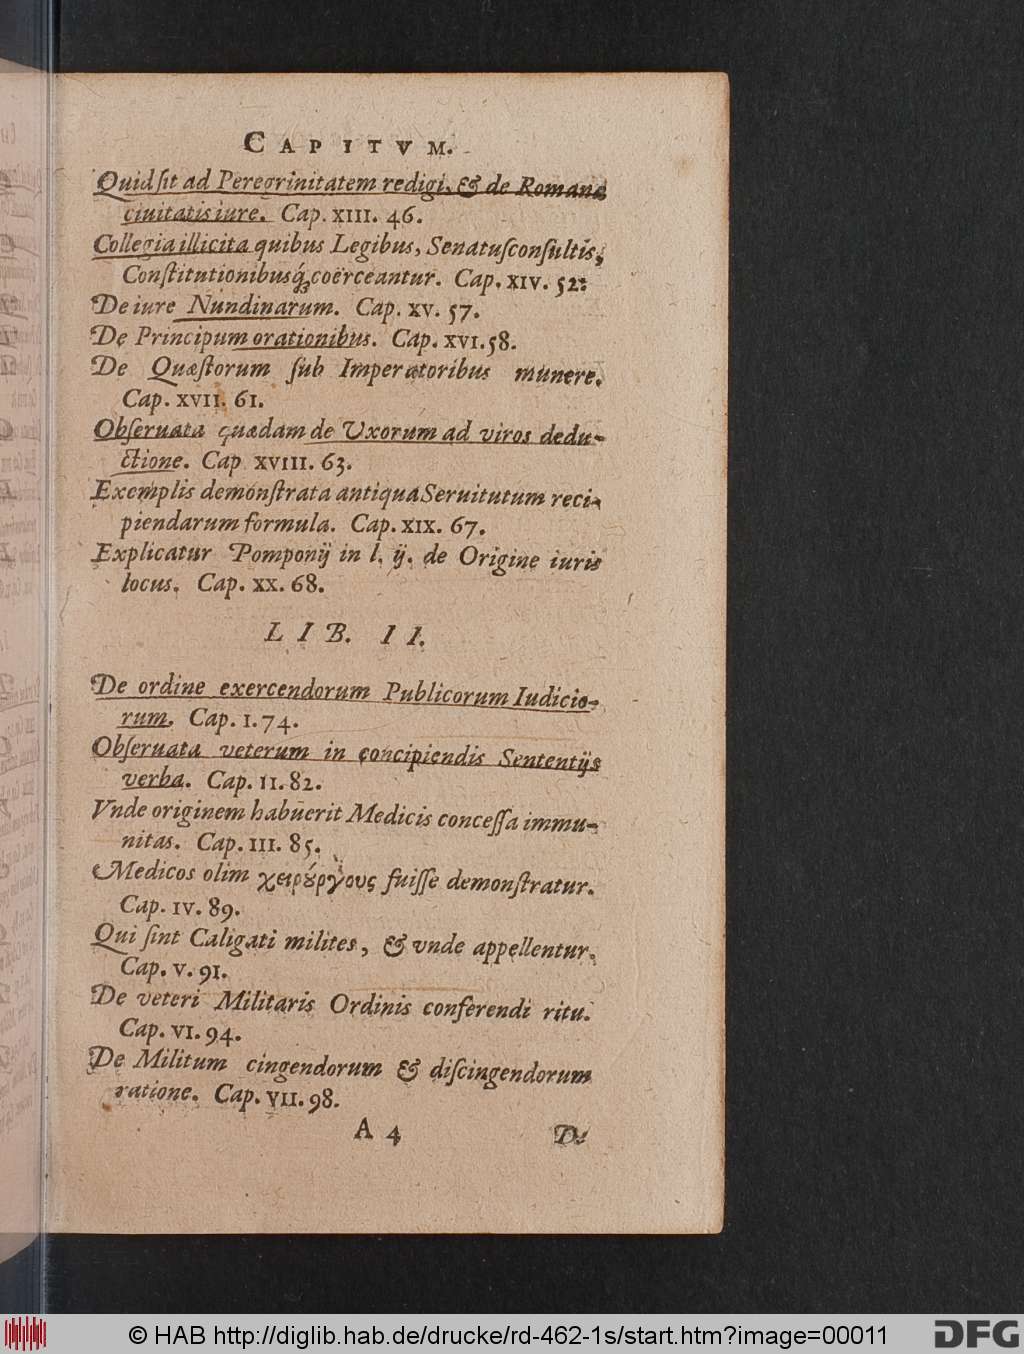 CAPITVM.
Quid ſit ad Peregrinitatem redigi, & de Romana
ciuitatis iure. Cap. XIII. 46.
Collegia illicita quibus Legibus, Senatuſconſultis,
Conſtitutionibusq́; coërceantur. Cap. XIV. 52.
De iure Nundinarum. Cap. XV. 57.
De Principum orationibus. Cap. XVI. 58.
De Quæſtorum ſub Imperatoribus munere.
Cap. XVII. 61.
Obſeruata quædam de Vxorum ad viros dedu-
ctione. Cap XVIII. 63.
Exemplis demonſtrata antiqua Seruitutum reci-
piendarum formula. Cap. XIX. 67.
Explicatur Pomponij in l. ij. de Origine iuris
locus. Cap. XX. 68.
LIB. II.
De ordine exercendorum Publicorum Iudicio-
rum. Cap. I. 74.
Obſeruata veterum in concipiendis Sententijs
verba. Cap. II. 82.
Vnde originem habuerit Medicis conceſſa immu-
nitas. Cap. III. 85.
Medicos olim χειρȣ́ργους fuiſſe demonſtratur.
Cap. IV. 89.
Qui ſint Caligati milites, & vnde appellentur.
Cap. V. 91.
De veteri Militaris Ordinis conferendi ritu.
Cap. VI. 94.
De Militum cingendorum & diſcingendorum
ratione. Cap. VII. 98.
A 4 De
© HAB http://diglib.hab.de/drucke/rd-462-1s/start.htm?image=00011 DFG